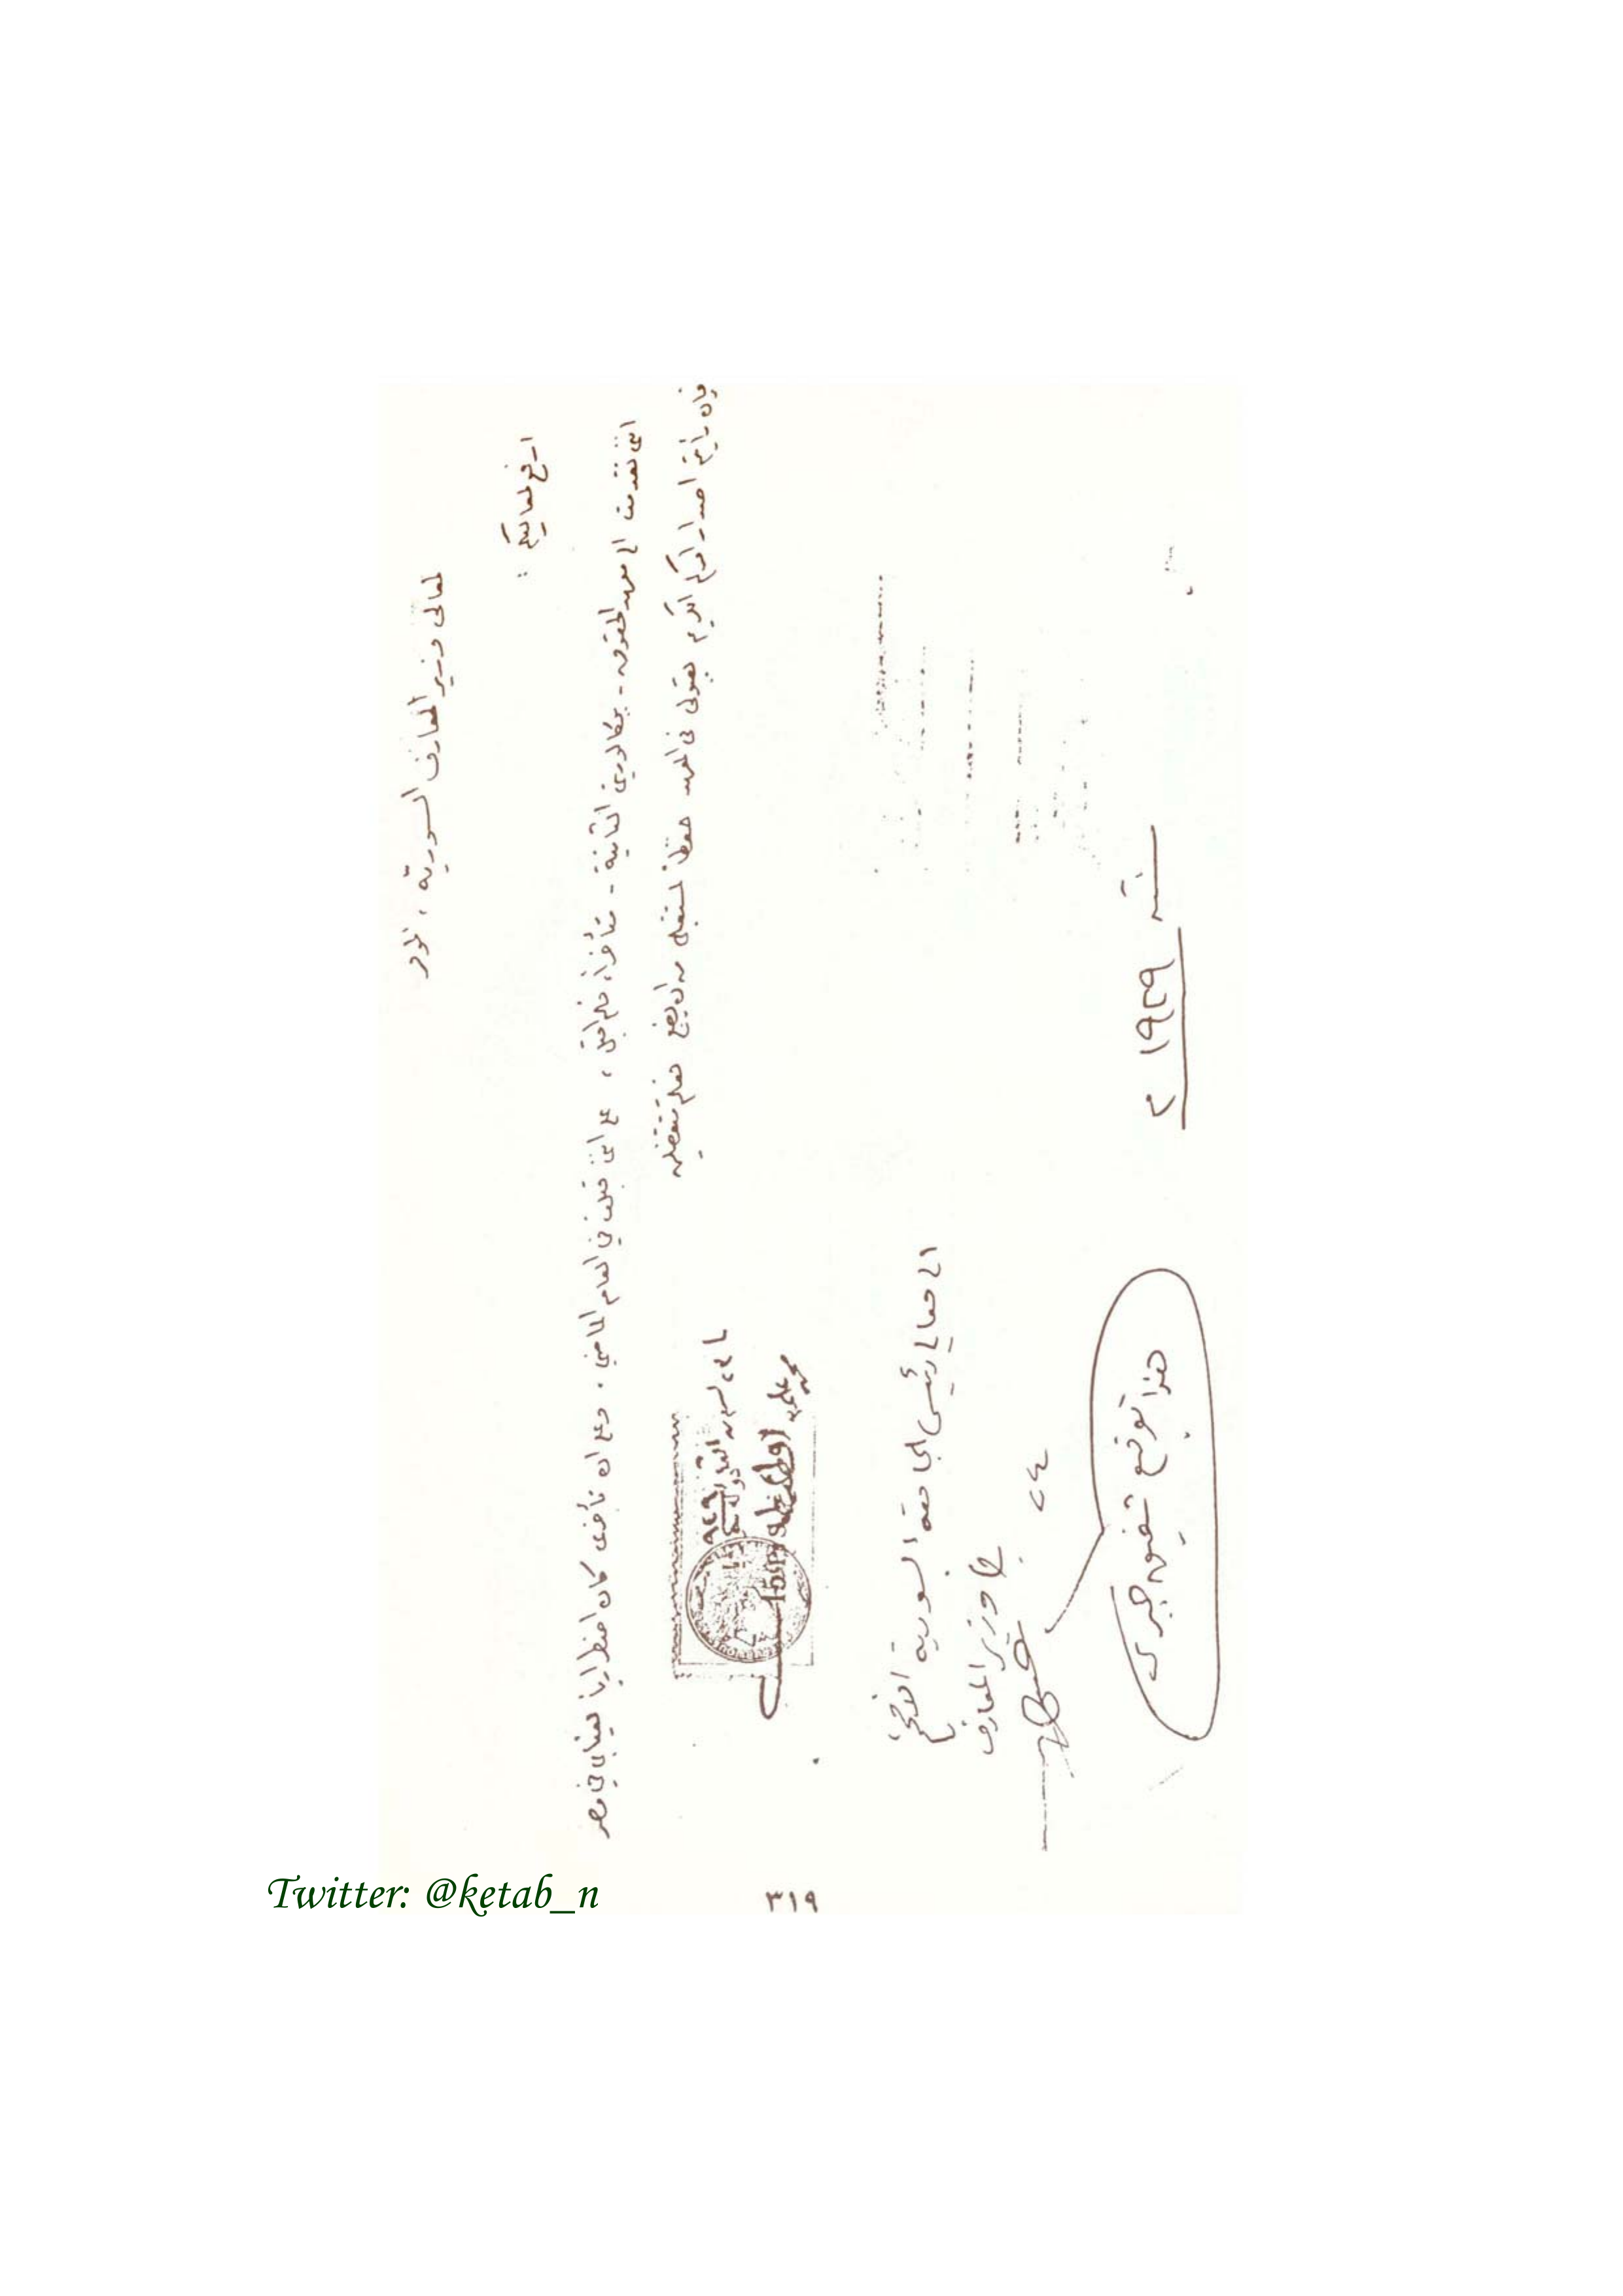 لمعالي وزير المعارف السورية ، الموقر
ارفع لمعاليكم :
انني تقدمت الى معهد الحقوق - ببكالوريتي الثانية - متأخراً، فلم اقبل ، مع انني قبلت في العام الماضي . ومع ان تأخري كان اضطرارياً لغيابي في مصر
فان رأيتم اصدار امركم الكريم بقبولي في المعهد حفظاً لمستقبلي من ان يضيع فعلتم متفضلين
٩٢٩
علي الطنطاوي
الى معالي رئيس الجامعة السورية الافخم
وزير المعارف
هذا توقيع شفيق جبري
سنة ١٩٢٩ م
٣١٩
Twitter: @ketab_n